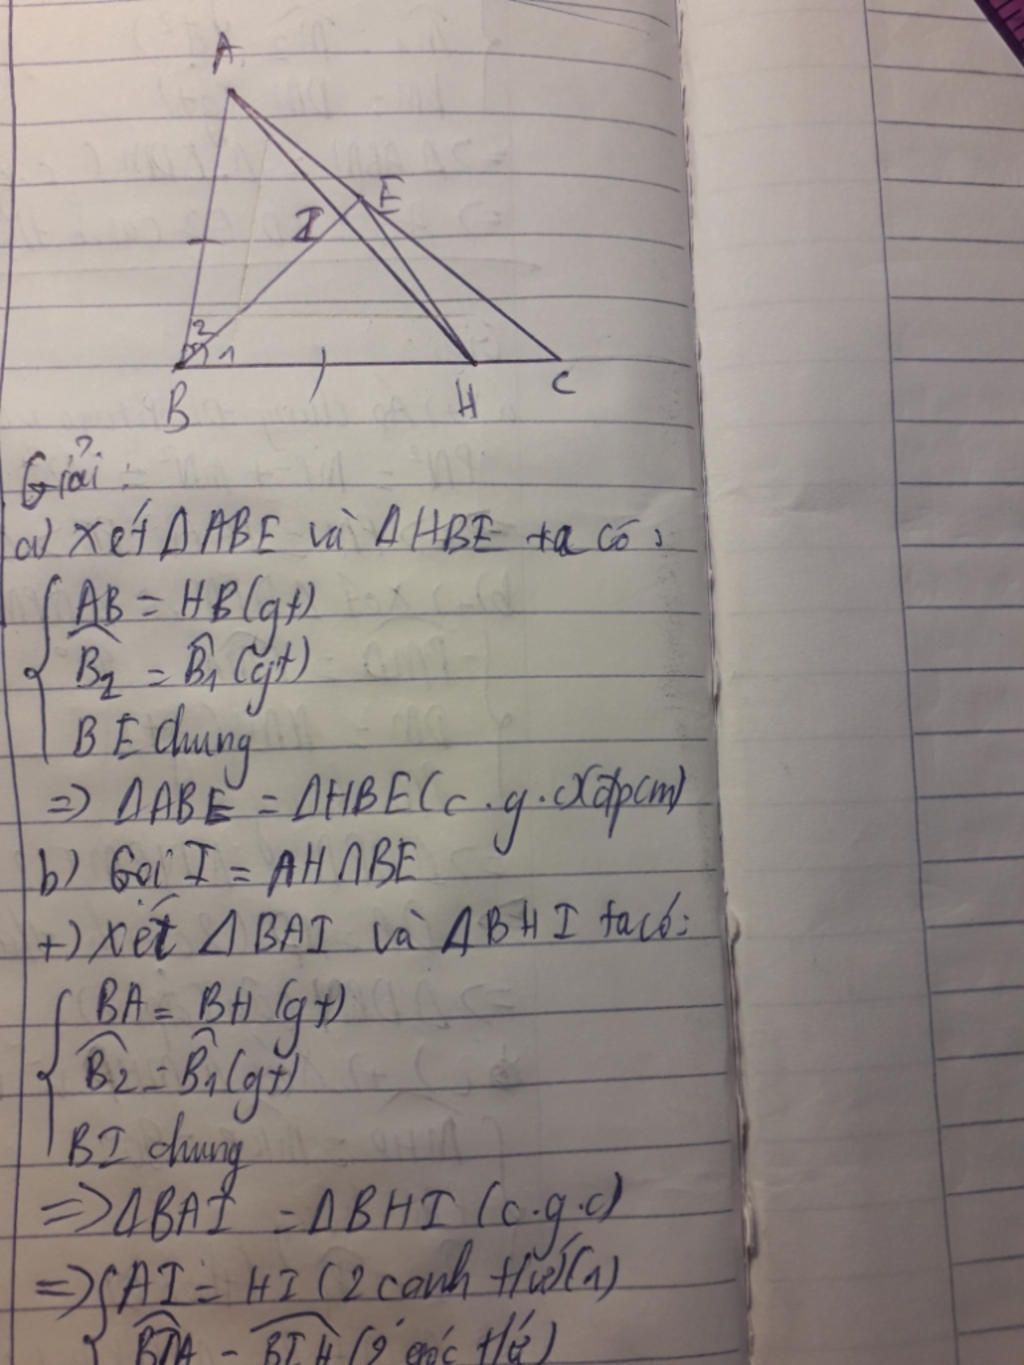 A
E
I
2
1
B
H
C
Giải:
a) Xét ΔABE và ΔHBE ta có:
AB = HB (gt)
B̂₂ = B̂₁ (gt)
BE chung
=> ΔABE = ΔHBE (c.g.c) (đpcm)
b) Gọi I = AH ∩ BE
+) Xét ΔBAI và ΔBHI ta có:
BA = BH (gt)
B̂₂ = B̂₁ (gt)
BI chung
=> ΔBAI = ΔBHI (c.g.c)
=> AI = HI (2 cạnh t/ứ) (1)
BIA = BIH (2 góc t/ứ)